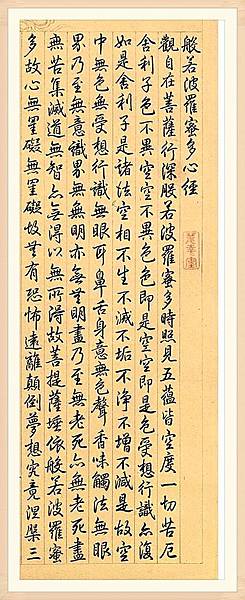 般若波羅蜜多心經
觀自在菩薩行深般若波羅蜜多時照見五蘊皆空度一切苦厄
舍利子色不異空空不異色色即是空空即是色受想行識亦復
如是舍利子是諸法空相不生不滅不垢不淨不增不減是故空
中無色無受想行識無眼耳鼻舌身意無色聲香味觸法無眼
界乃至無意識界無無明亦無無明盡乃至無老死亦無老死盡
無苦集滅道無智亦無得以無所得故菩提薩埵依般若波羅蜜
多故心無罣礙無罣礙故無有恐怖遠離顛倒夢想究竟涅槃三